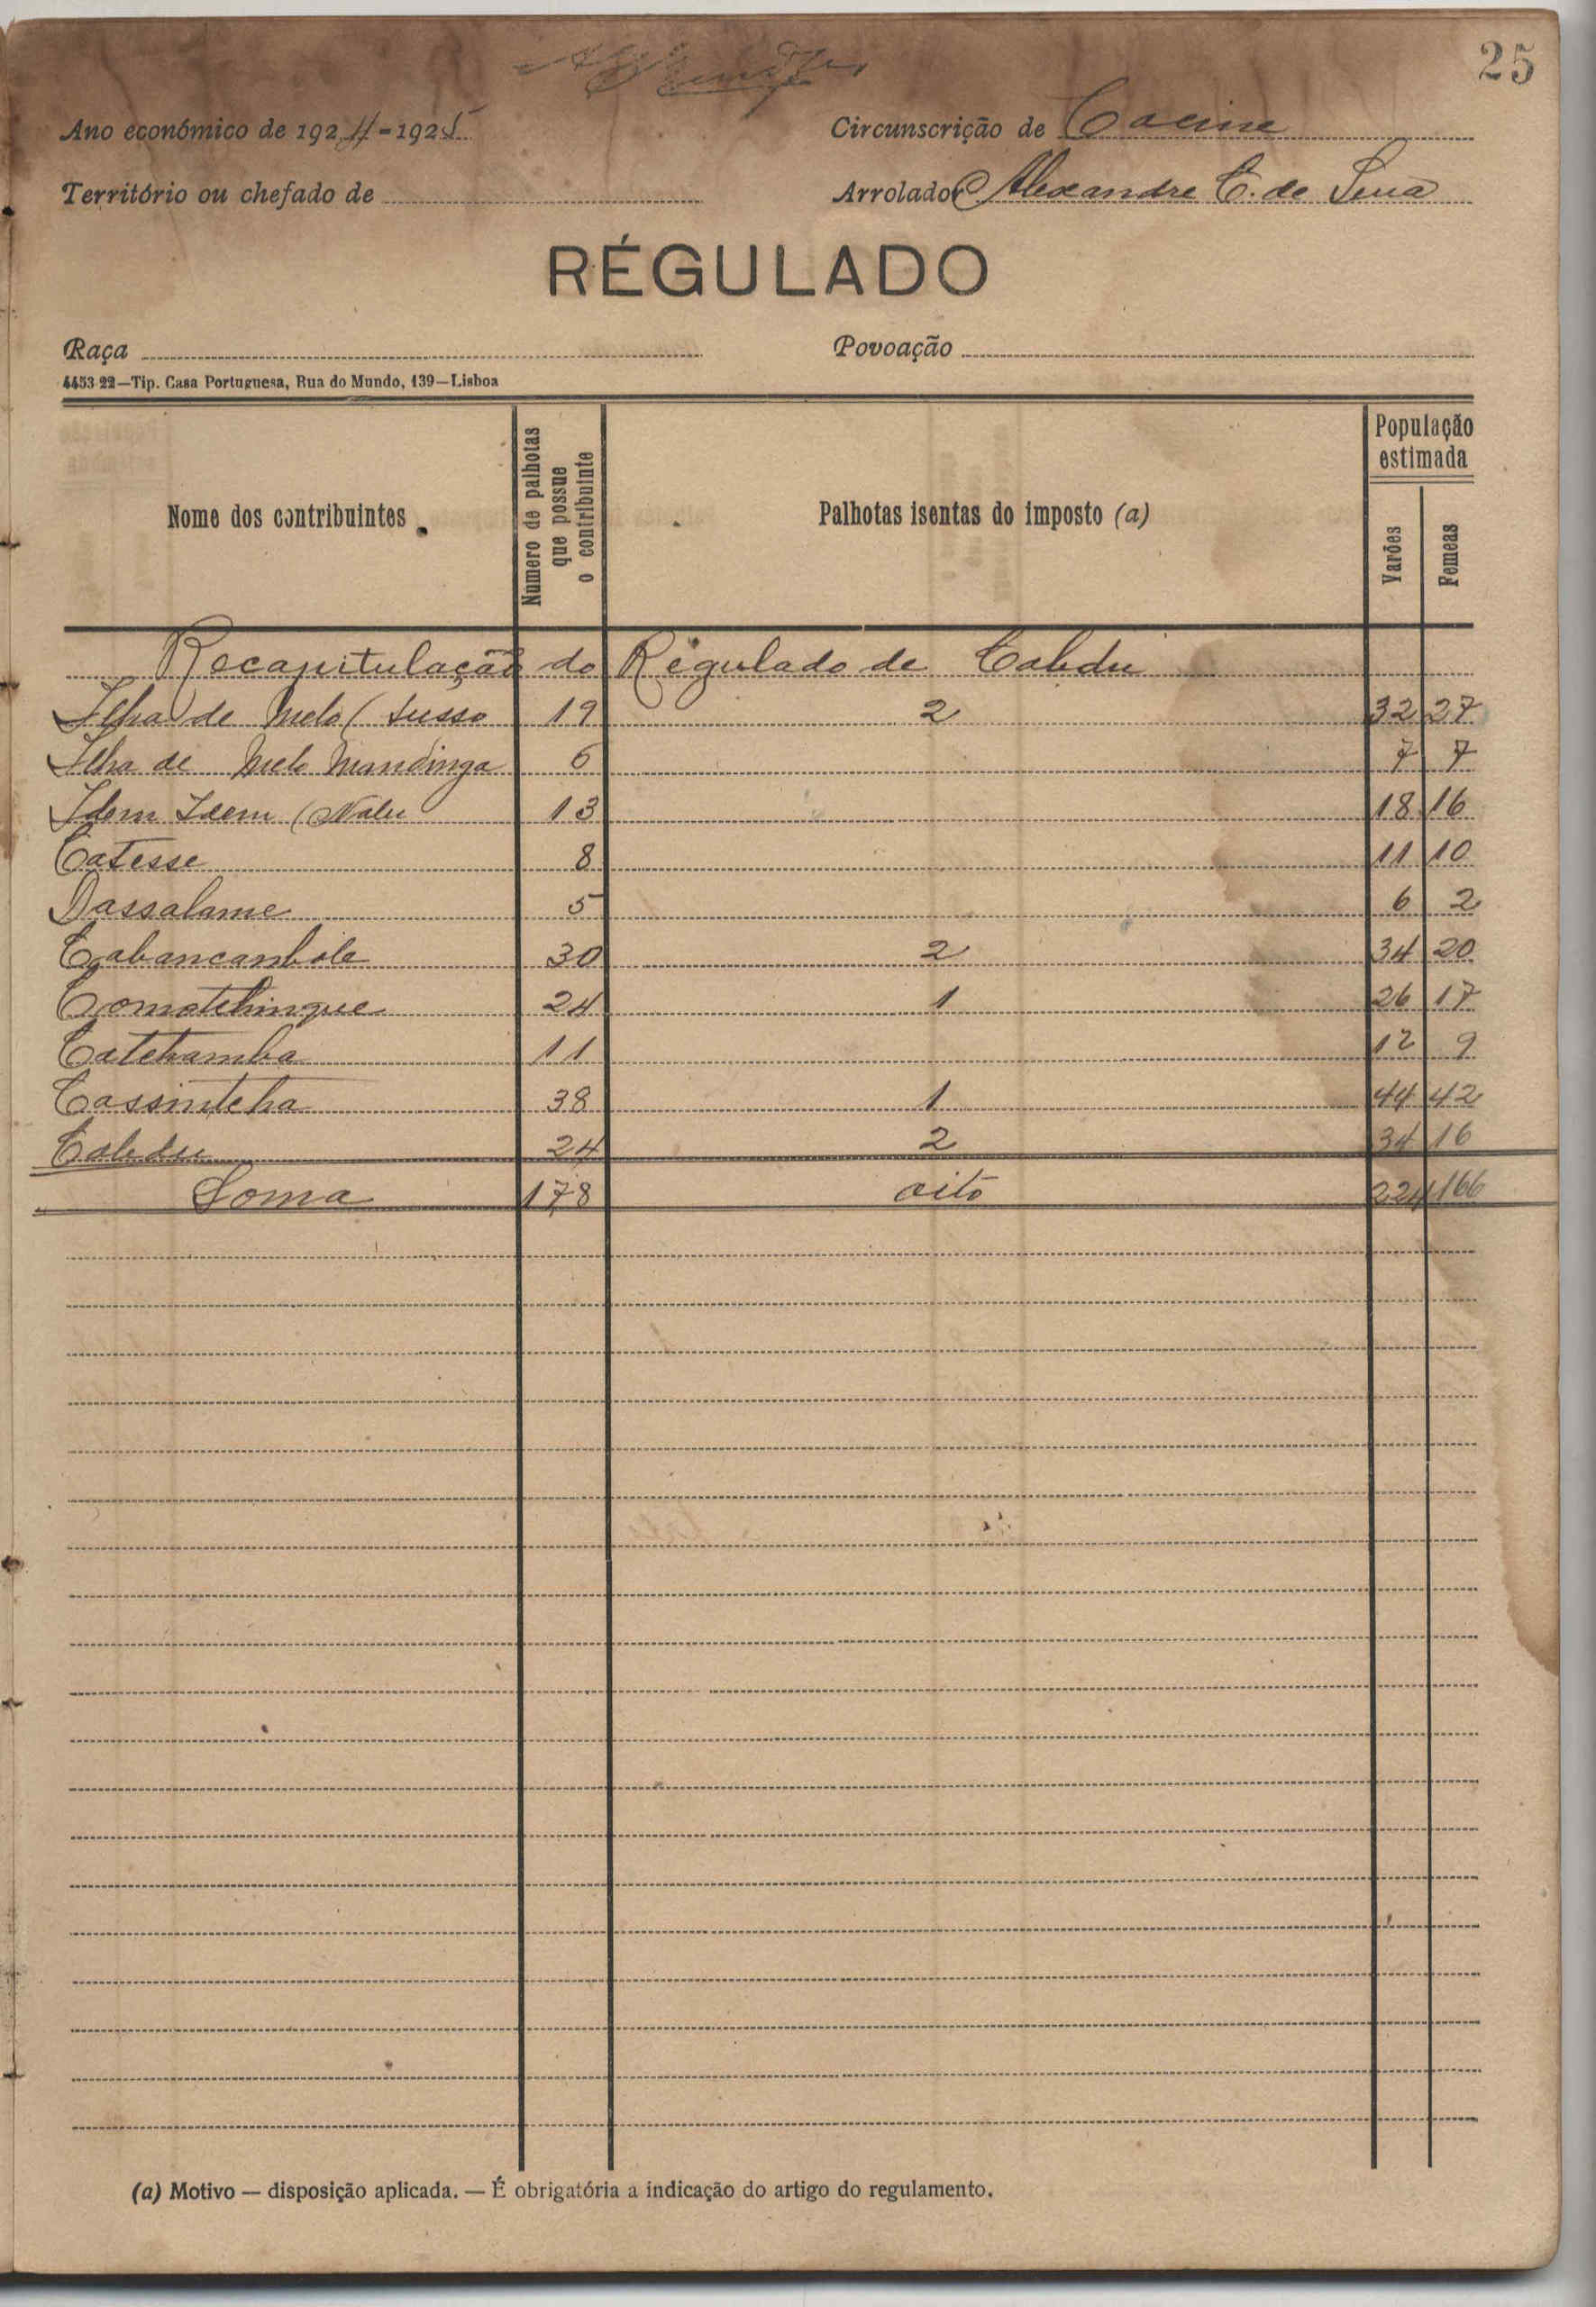 25
Ano económico de 1924-1925
Circunscrição de Cacine
Território ou chefado de
Arrolador Alexandre C. de Sena
RÉGULADO
Raça
Povoação
4453-22—Tip. Casa Portuguesa, Rua do Mundo, 139—Lisboa
Nome dos contribuintes
Numero de palhotas que possue o contribuinte
Palhotas isentas do imposto (a)
População estimada
Varões
Femeas
Recapitulação do Régulado de Cabedu
Ilha de Melo (Susso 19 2 32 27
Ilha de Melo Mandinga 6 7 7
Idem Idem (Nalu 13 18 16
Catesse 8 11 10
Dassalame 5 6 2
Cabancanbole 30 2 34 20
Comatchingue 24 1 26 17
Catchamba 11 12 9
Cassintcha 38 1 44 42
Cabedu 24 2 34 16
Soma 178 oito 224 166
(a) Motivo — disposição aplicada. — É obrigatória a indicação do artigo do regulamento.